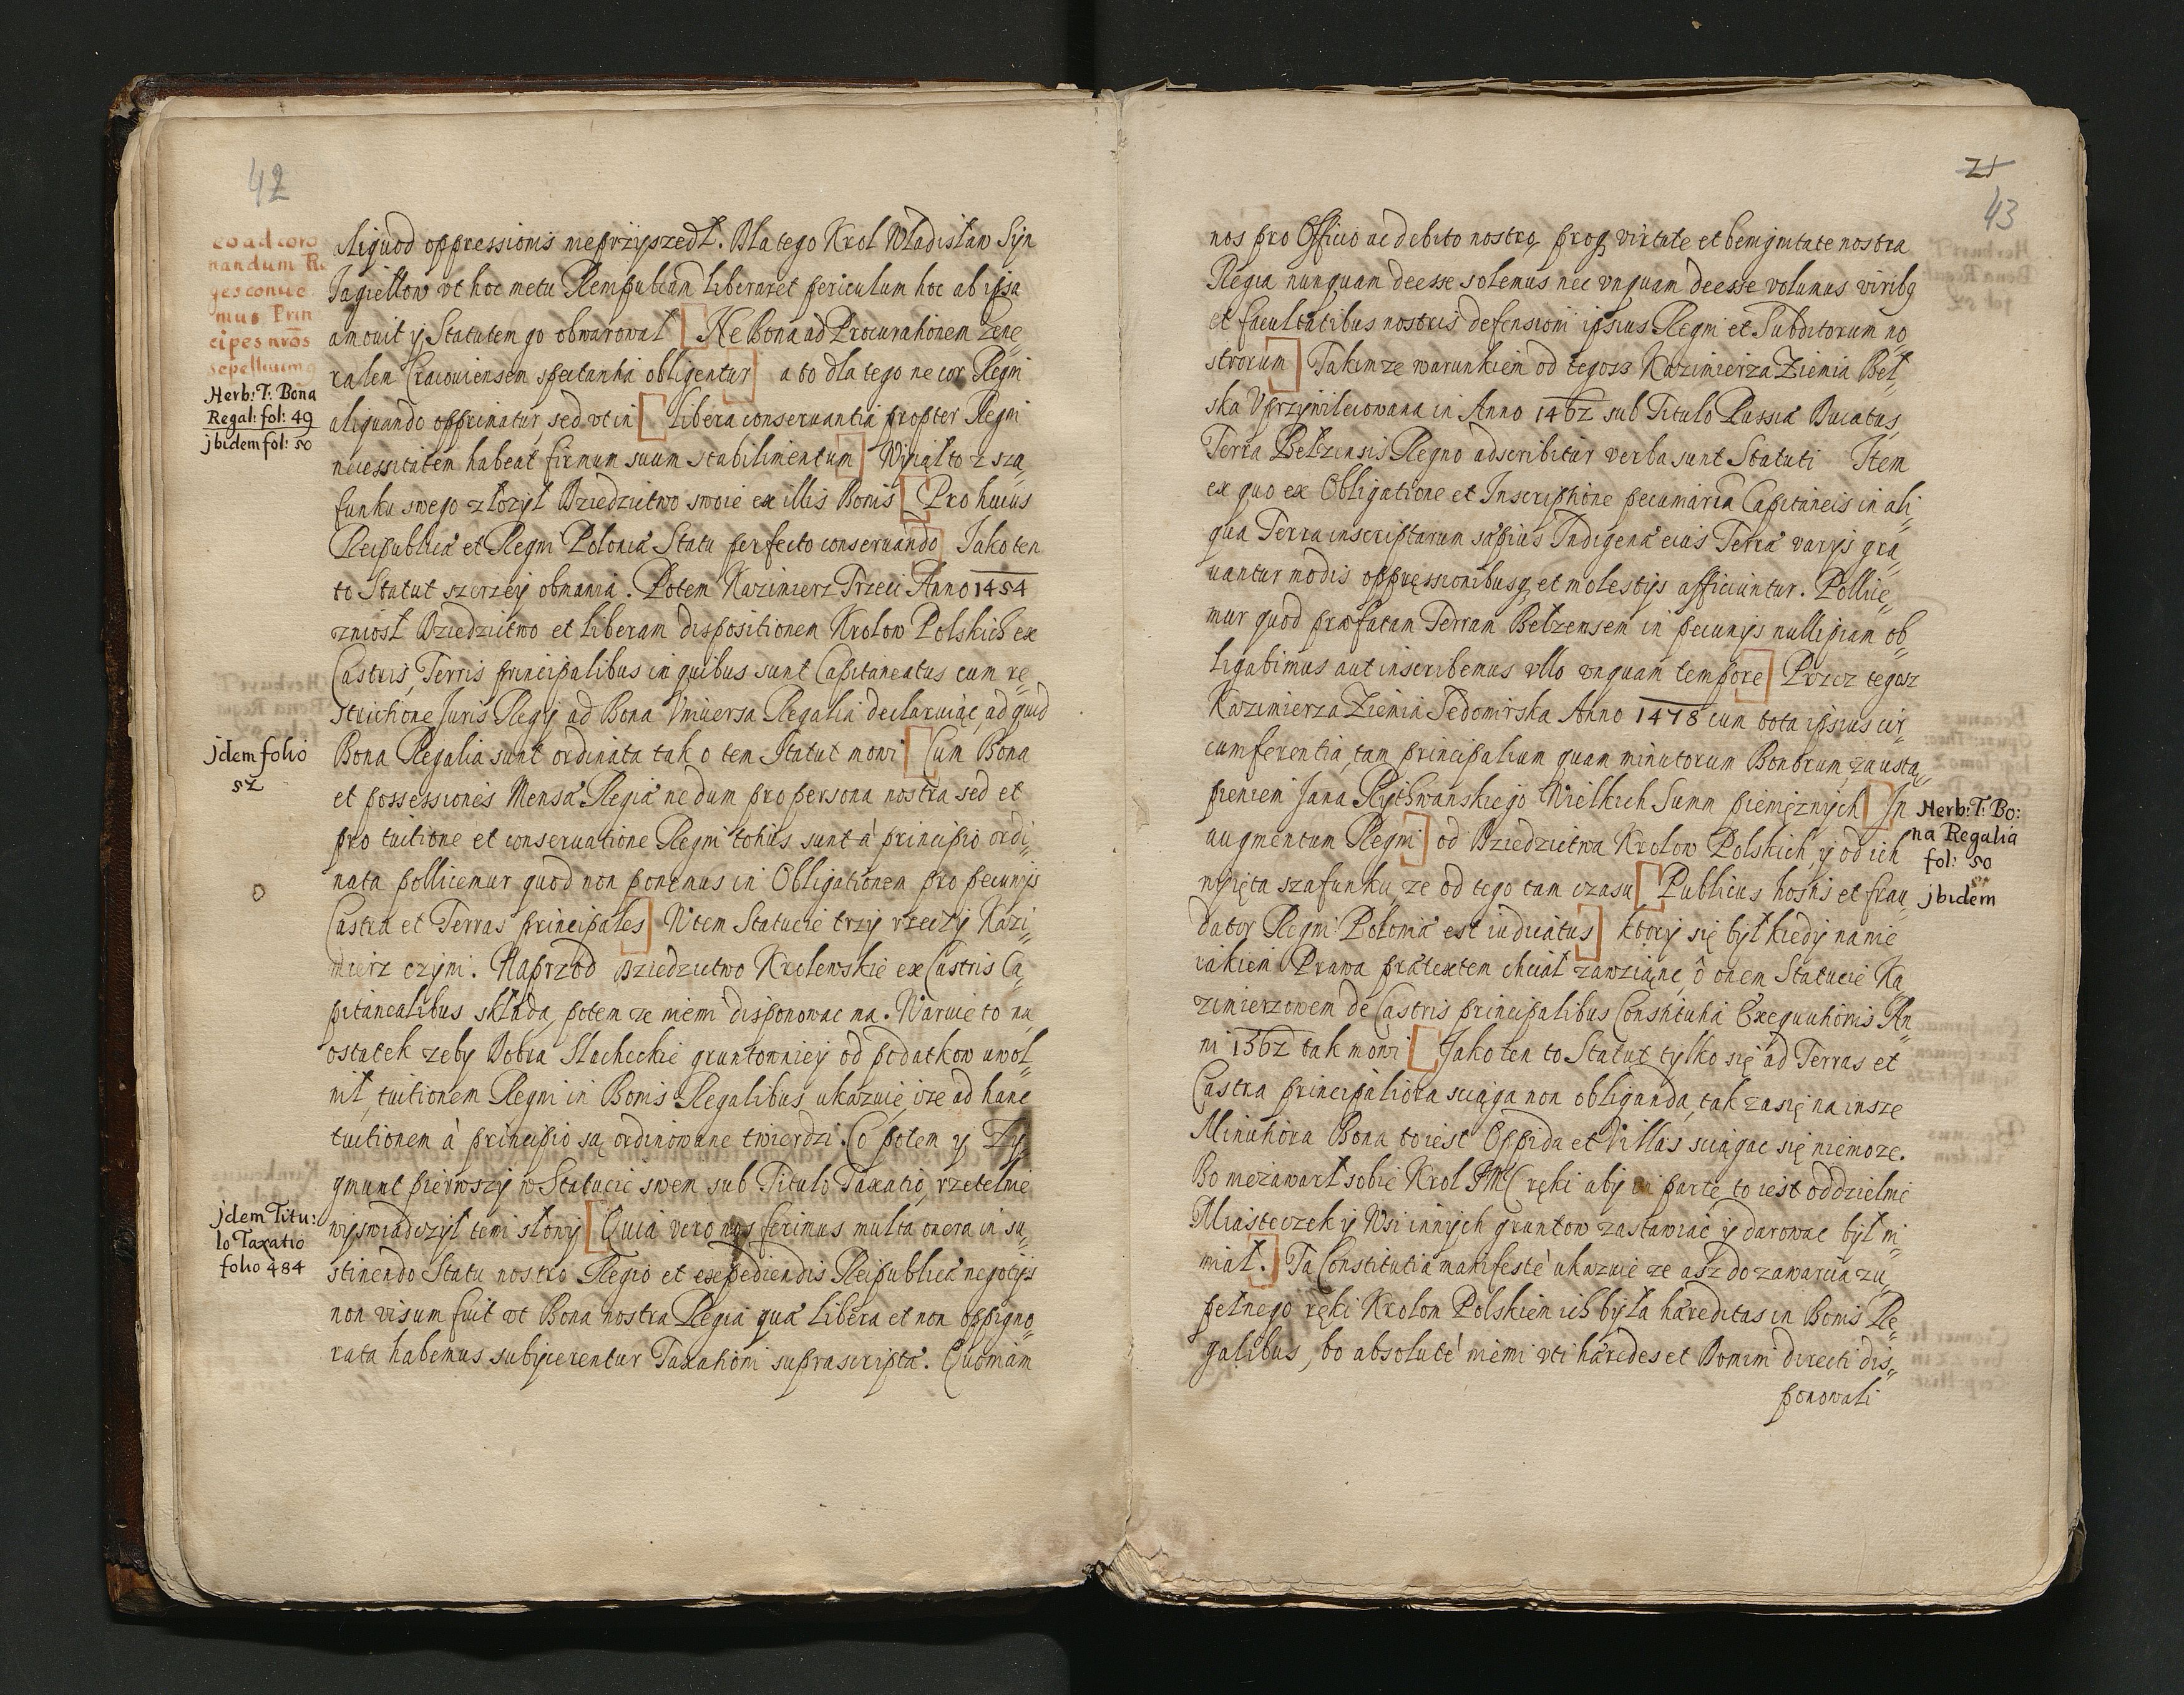 42
eo ad coro
nandum Re
ges conue
mus Prin
cipes nr̄os
sepelliuimq
Herb: T: Bona
Regal: fol: 49
jbidem fol: 50
aliquod oppressionis nieprzyszedł. Dla tego Krol Władisław Syn
Jagiellow vt hoc metu Rempubcam liberaret periculum hoc ab ipsa
amouit y Statutem go obwarował [Ne Bona ad Procurationem Gene„
ralem Cracouiensem spectantia obligentur] a to dla tego ne cor Regni
aliquando opprimatur, sed vt in [libera conseruantia propter Regni
necessitatem habeat firmum suum stabilimentum] Wyiął to z sza„
funku swego złozył Dziedzictwo swoie ex illis Bonis [Pro huius
Reipublicæ et Regni Poloniæ Statu perfecto conseruando] Jako ten
to Statut szerzey obmawia. Potem Kazimierz Trzeci Anno 1454
zniosł Dziedzictwo et liberam dispositionem Krolow Polskich ex
Castris, Terris principalibus in quibus sunt Capitaneatus cum re„
strictione Juris Regij ad Bona Vniuersa Regalia declaruiąc, ad quid
Bona Regalia sunt ordinata tak o tem Statut mowi [Cum Bona
jdem folio
52
et possessiones Mensæ Regiæ nedum pro persona nostra sed et
pro tuitione et conseruatione Regni totius sunt à principio ordi„
nata pollicemur quod non ponemus in Obligationem pro pecunijs
Castra et Terras principales] W tem Statucie trzy rzeczy Kazi„
mierz czyni. Naprzod Dziedzictwo Krolewskie ex Castris Ca„
pitanealibus składa, potem ze niemi disponowac ma. Waruie to na
ostatek zeby Dobra Slacheckie gruntowniey od podatkow uwol„
nił, tuitionem Regni in Bonis Regalibus ukazuie, ize ad hanc
tuitionem à principio są ordinowane twierdzi. Co potem y Zy„
gmunt pierwszy w Statucie swem sub Titulo Taxatio, rzetelnie
wyswiadczył temi słowy [Quia vero nos ferimus multa onera in su„
jdem Titu:
lo Taxatio
folio 484
stinendo Statu nostro Regio et expediendis Reipublicæ negotijs
non visum fuit vt Bona nostra Regia quæ libera et non oppigno„
rata habemus subijcerentur Taxationi suprascriptæ. Quoniam
21
43
nos pro Officio ac debito nostro, proq virtute et benignitate nostra
Regia nunquam deesse solemus nec vnquam deesse volumus viribq
et facultatibus nostris defensioni ipsius Regni et Subditorum no„
strorum] Takimze warunkiem od tegosz Kazimierza Ziemia Bel„
ska Vprzywileiowana in Anno 1462 sub Titulo Russiæ Ducatus
Terra Belzensis Regno adscribitur verba sunt Statuti Item
ex quo ex Obligatione et Inscriptione pecuniaria Capitaneis in ali„
qua Terra inscriptarum sæpius Indigenæ eius Terræ varijs gra„
uantur modis oppressionibusq, et molestijs afficiuntur. Pollice„
mur quod præfatam Terram Belzensem in pecunijs nulli piam ob„
ligabimus aut inscribemus vllo vnquam tempore] Przez tegosz
Kazimierza Ziemia Sędomirska Anno 1478 cum tota ipsius cir„
cumferentia, tam principalium quam minutorum Bonorum za usta„
pieniem Jana Rythwanskiego Wielkich Summ pieniężnych [In
Herb: T: Bo:
na Regalia
fol: 50
augmentum Regni] od Dziedzictwa Krolow Polskich, y od ich
wyięta szafunku, ze od tego tam czasu [Publicus hostis et frau„
jbidem
dator Regni Poloniæ est iudicatus] ktory się był kiedy na nie
iakiem Prawa prætextem chciał zawziąnc, o onem Statucie Ka„
zimierzowem de Castris principalibus Constitutia Exequutionis An„
ni 1562 tak mowi [Jako ten to Statut tylko się ad Terras et
Castra principaliora sciąga non obliganda, tak zasię na insze
Minutiora Bona to iest Oppida et Villas sciągac się niemoze.
Bo niezawarł sobie Krol JMC ręki aby ex parte, to iest oddzielnie
Miasteczek y Wsi innych gruntow zastawiac y darowac był ni
miał.] Ta Constitutia manifestè ukazuie ze asz do zawarcia zu„
pełnego ręki Krolom Polskiem ich była hæreditas in Bonis Re„
galibus, bo absolutè niemi vti hæredes et Domini directi dis„
ponowali